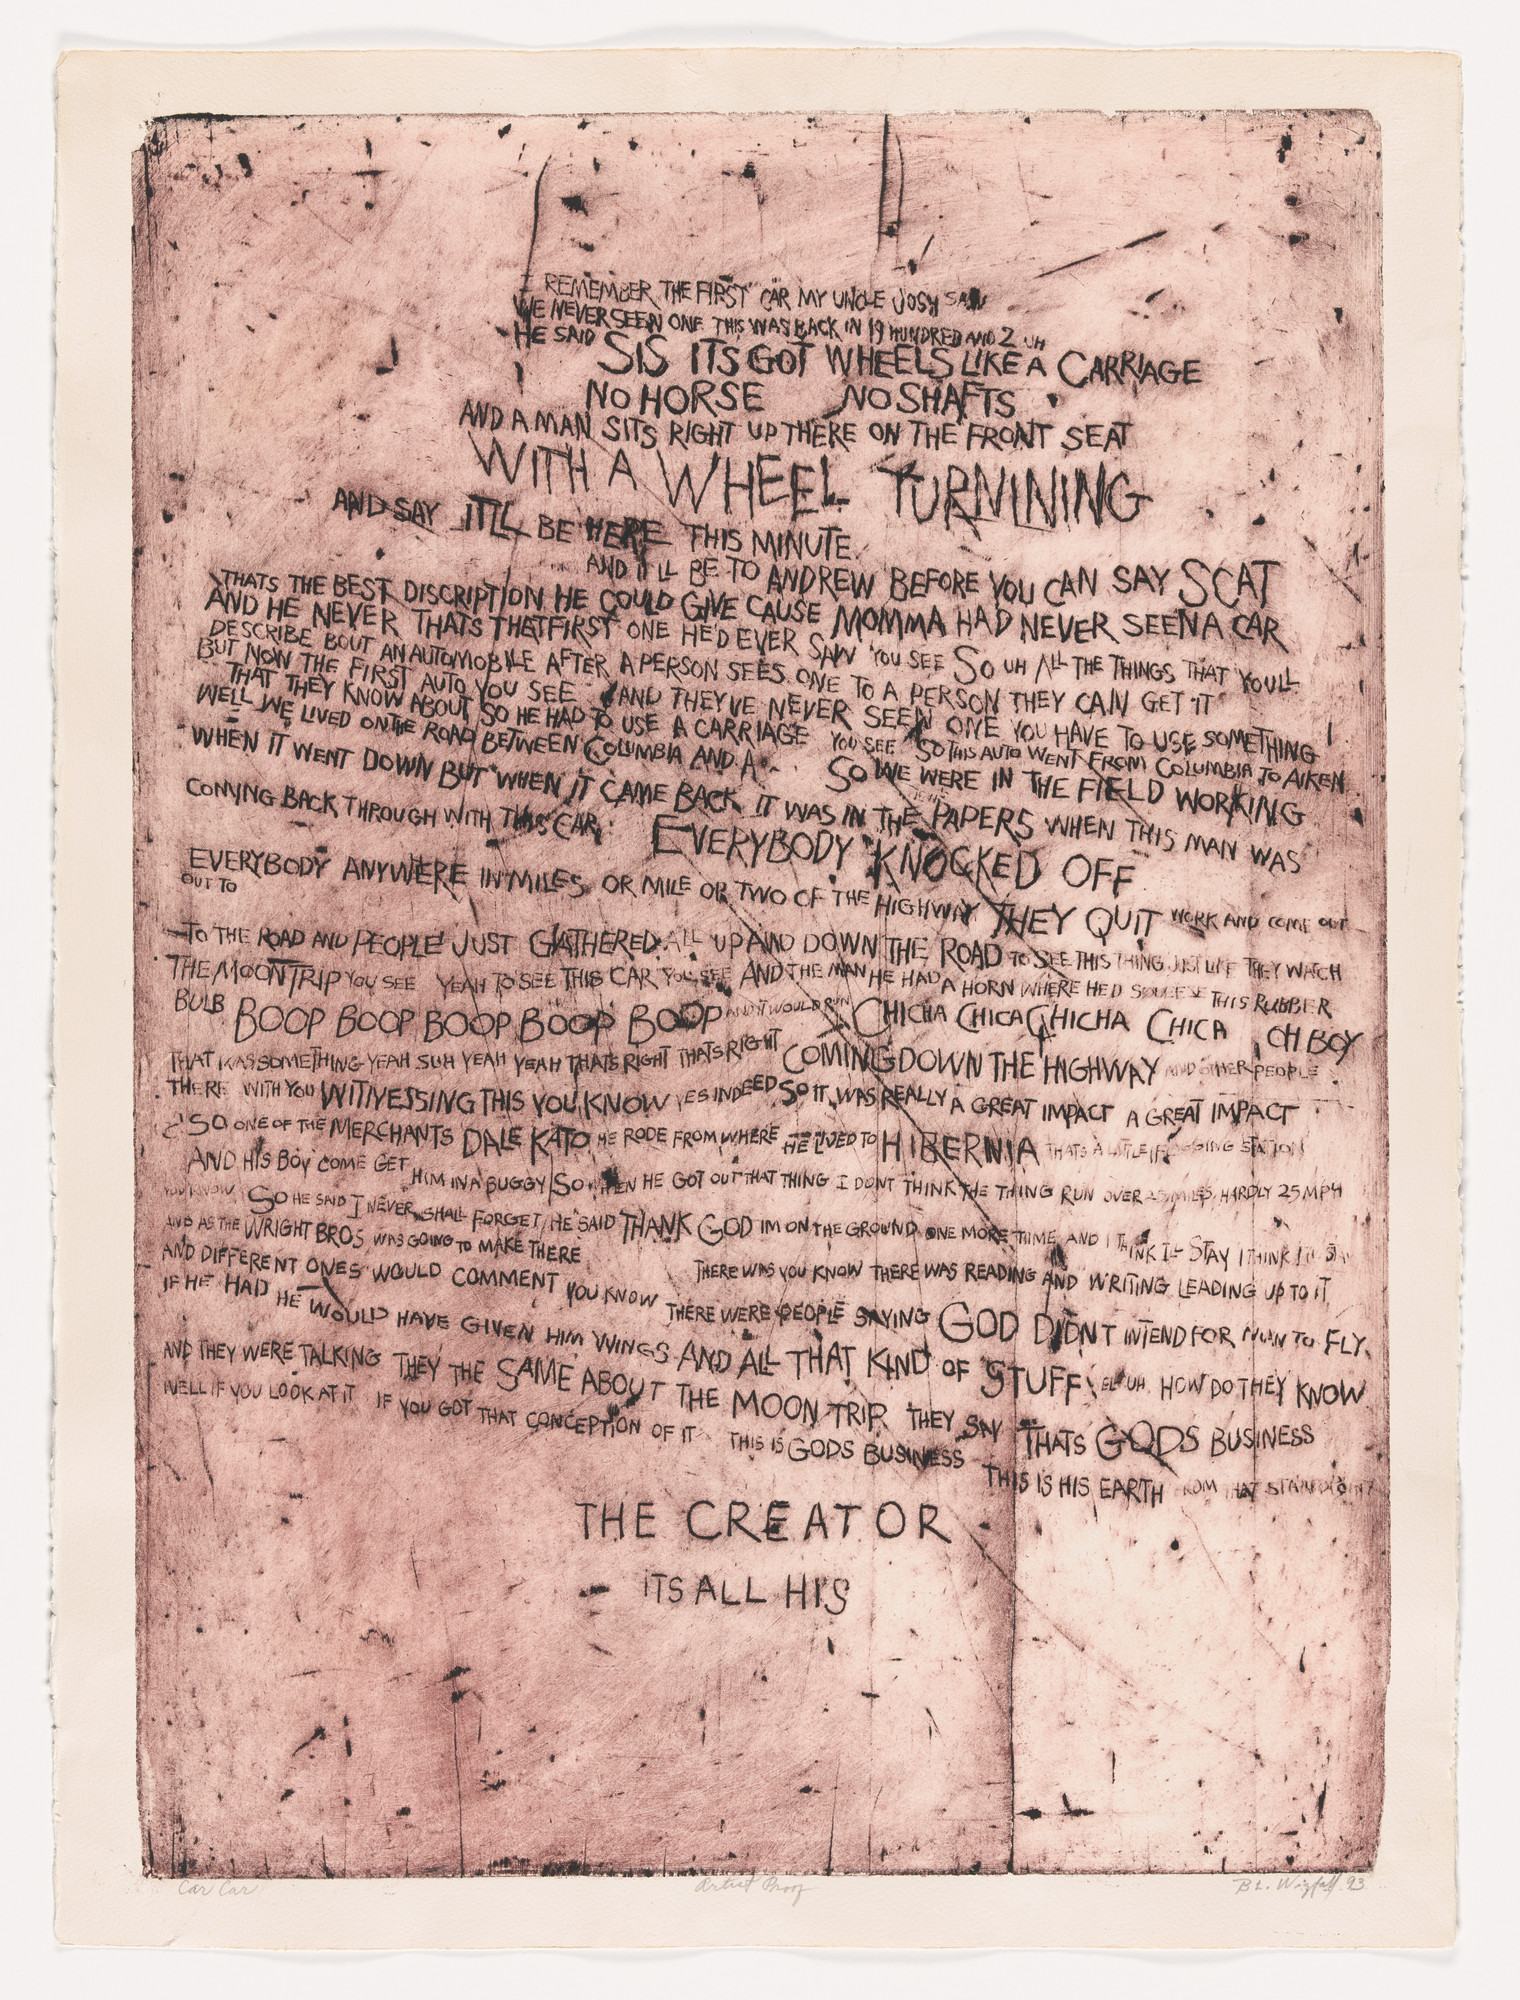 I REMEMBER THE FIRST CAR MY UNCLE JOSH SAW
WE NEVER SEEN ONE THIS WAS BACK IN 19 HUNDRED AND 2 UH
HE SAID SIS ITS GOT WHEELS LIKE A CARRIAGE
NO HORSE NO SHAFTS
AND A MAN SITS RIGHT UP THERE ON THE FRONT SEAT
WITH A WHEEL TURNINING
AND SAY IT'LL BE HERE THIS MINUTE
AND IT'LL BE TO ANDREW BEFORE YOU CAN SAY SCAT
THATS THE BEST DISCRIPTION HE COULD GIVE CAUSE MOMMA HAD NEVER SEEN A CAR
AND HE NEVER THATS THE FIRST ONE HE'D EVER SAW YOU SEE SO UH ALL THE THINGS THAT YOULL
DESCRIBE BOUT AN AUTOMOBILE AFTER A PERSON SEES ONE TO A PERSON THEY CAN GET IT
BUT NOW THE FIRST AUTO YOU SEE AND THEY'VE NEVER SEEN ONE YOU HAVE TO USE SOMETHING
THAT THEY KNOW ABOUT SO HE HAD TO USE A CARRIAGE YOU SEE SO THIS AUTO WENT FROM COLUMBIA TO AIKEN
WELL WE LIVED ON THE ROAD BETWEEN COLUMBIA AND A SO WE WERE IN THE FIELD WORKING
WHEN IT WENT DOWN BUT WHEN IT CAME BACK IT WAS IN THE PAPERS WHEN THIS MAN WAS
COMING BACK THROUGH WITH THIS CAR EVERYBODY KNOCKED OFF
EVERYBODY ANYWERE IN MILES OR MILE OR TWO OF THE HIGHWAY THEY QUIT WORK AND COME OUT
OUT TO
TO THE ROAD AND PEOPLE JUST GATHERED ALL UP AND DOWN THE ROAD TO SEE THIS THING JUST LIKE THEY WATCH
THE MOON TRIP YOU SEE YEAH TO SEE THIS CAR YOU SEE AND THE MAN HE HAD A HORN WHERE HED SQUEESE THIS RUBBER
BULB BOOP BOOP BOOP BOOP BOOP AND IT WOULD RUN CHICHA CHICA CHICHA CHICA OH BOY
THAT WAS SOMETHING YEAH SUH YEAH YEAH THATS RIGHT THATS RIGHT COMING DOWN THE HIGHWAY AND OTHER PEOPLE
THERE WITH YOU WITNESSING THIS YOU KNOW YES INDEED SO IT WAS REALLY A GREAT IMPACT A GREAT IMPACT
SO ONE OF THE MERCHANTS DALE KATO HE RODE FROM WHERE HE LIVED TO HIBERNIA THATS A LITTLE FLAGGING STATION
AND HIS BOY COME GET HIM IN A BUGGY SO WHEN HE GOT OUT THAT THING I DONT THINK THE THING RUN OVER 25 MILES HARDLY 25 MPH
YOU KNOW SO HE SAID I NEVER SHALL FORGET HE SAID THANK GOD IM ON THE GROUND ONE MORE TIME AND I THINK ILL STAY I THINK ILL
AND AS THE WRIGHT BROS WAS GOING TO MAKE THERE THERE WAS YOU KNOW THERE WAS READING AND WRITING LEADING UP TO IT
AND DIFFERENT ONES WOULD COMMENT YOU KNOW THERE WERE PEOPLE SAYING GOD DIDN'T INTEND FOR MAN TO FLY
IF HE HAD HE WOULD HAVE GIVEN HIM WINGS AND ALL THAT KIND OF STUFF WEL UH HOW DO THEY KNOW
AND THEY WERE TALKING THEY THE SAME ABOUT THE MOON TRIP THEY SAY THATS GODS BUSINESS
WELL IF YOU LOOK AT IT IF YOU GOT THAT CONCEPTION OF IT THIS IS GODS BUSINESS
THIS IS HIS EARTH FROM THAT STANDPOINT
THE CREATOR
ITS ALL HIS
Car Car Artist Proof B L. Wigfall 93